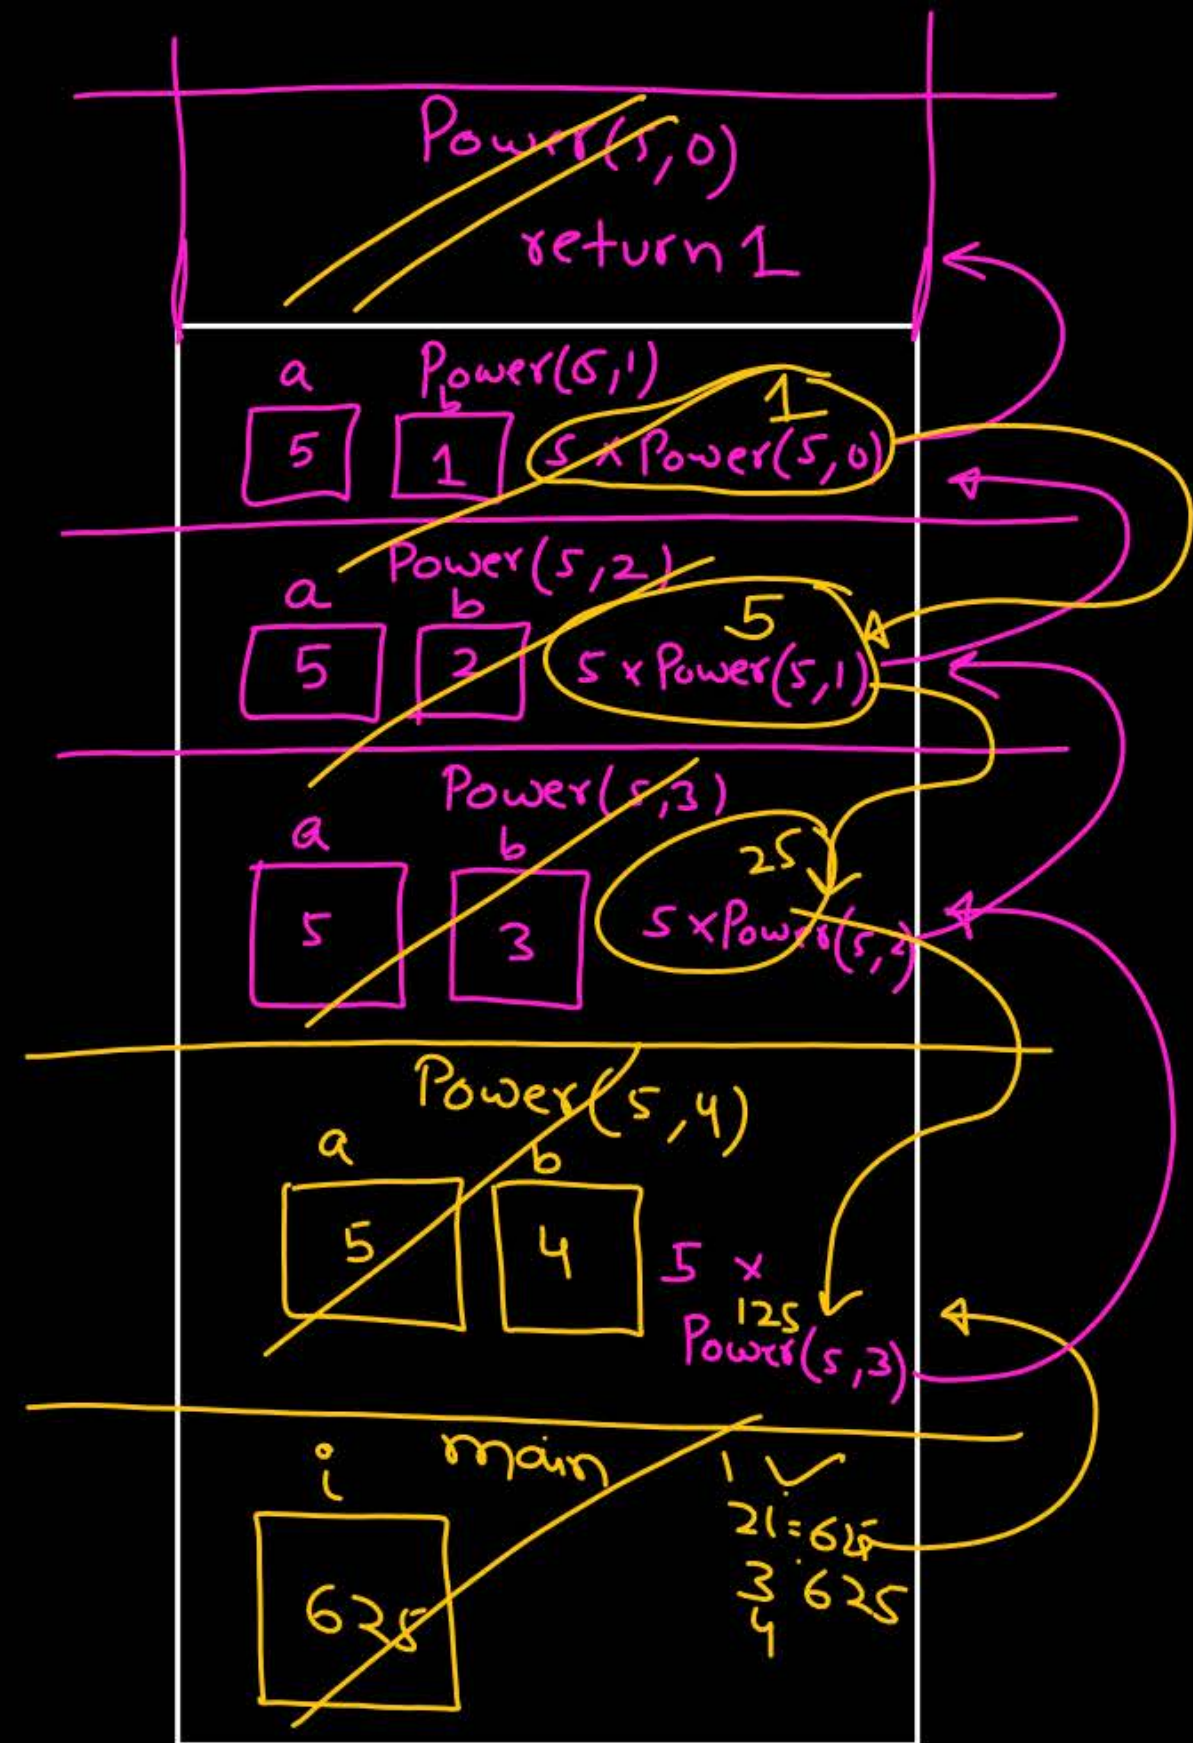 Power(5,0)
return 1
a Power(5,1)
b
1
5 1 5 x Power(5,0)
Power(5,2)
a b
5
5 2 5 x Power(5,1)
Power(5,3)
a b
25
5 3 5 x Power(5,2)
Power(5,4)
a b
5 4 5 x
125
Power(5,3)
i main 1 ✓
2 i = 625
625 3 625
4